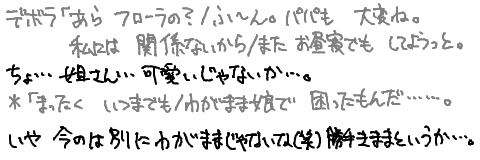 デボラ「あら フローラの?/ふ~ん。パパも 大変ね。
私には 関係ないから/また お昼寝でも してようっと。
ちょ…姐さん…可愛いじゃないか…。
*「まったく いつまでも/わがまま娘で 困ったもんだ……。
いや 今のは別にわがままじゃないな(笑)勝手きままというか…。